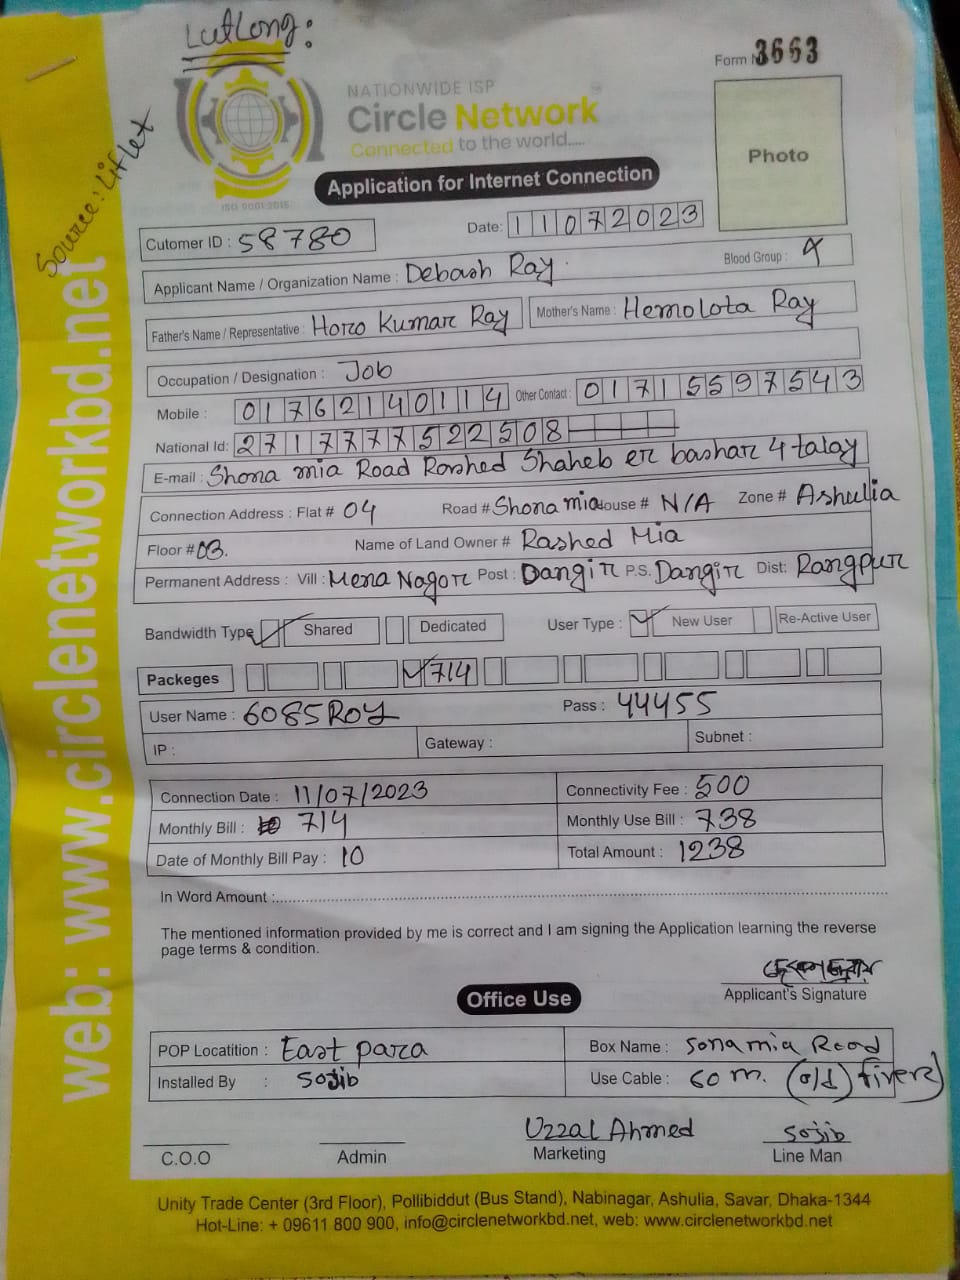 LatLong:
Form N 3663
Source: Liflet
NATIONWIDE ISP
Circle Network
Connected to the world.....
ISO 9001:2015
Photo
Application for Internet Connection
Cutomer ID : 58780 Date: 11072023
Applicant Name / Organization Name : Debash Ray. Blood Group :
Father's Name / Representative : Horo Kumar Ray Mother's Name : Hemolota Ray
Occupation / Designation : Job
Mobile : 01762140114 Other Contact : 01715597543
National Id: 2717777522508
E-mail : Shona mia Road Rashed Shaheb er bashar 4 talay
Connection Address : Flat # 04 Road # Shona mia House # N/A Zone # Ashulia
Floor # 03. Name of Land Owner # Rashed Mia
Permanent Address : Vill : Mena Nagor Post : Dangir P.S. Dangir Dist: Rangpur
Bandwidth Type Shared Dedicated User Type : New User Re-Active User
Packeges 714
User Name : 6085ROY Pass : 44455
IP : Gateway : Subnet :
Connection Date : 11/07/2023 Connectivity Fee : 500
Monthly Bill : 714 Monthly Use Bill : 738
Date of Monthly Bill Pay : 10 Total Amount : 1238
In Word Amount :
The mentioned information provided by me is correct and I am signing the Application learning the reverse
page terms & condition.
Applicant's Signature
Office Use
POP Locatition : East para Box Name : Sona mia Road
Installed By : Sojib Use Cable : 60 m. (old) fiver)
Uzzal Ahmed Sojib
C.O.O Admin Marketing Line Man
web: www.circlenetworkbd.net
Unity Trade Center (3rd Floor), Pollibiddut (Bus Stand), Nabinagar, Ashulia, Savar, Dhaka-1344
Hot-Line: + 09611 800 900, info@circlenetworkbd.net, web: www.circlenetworkbd.net